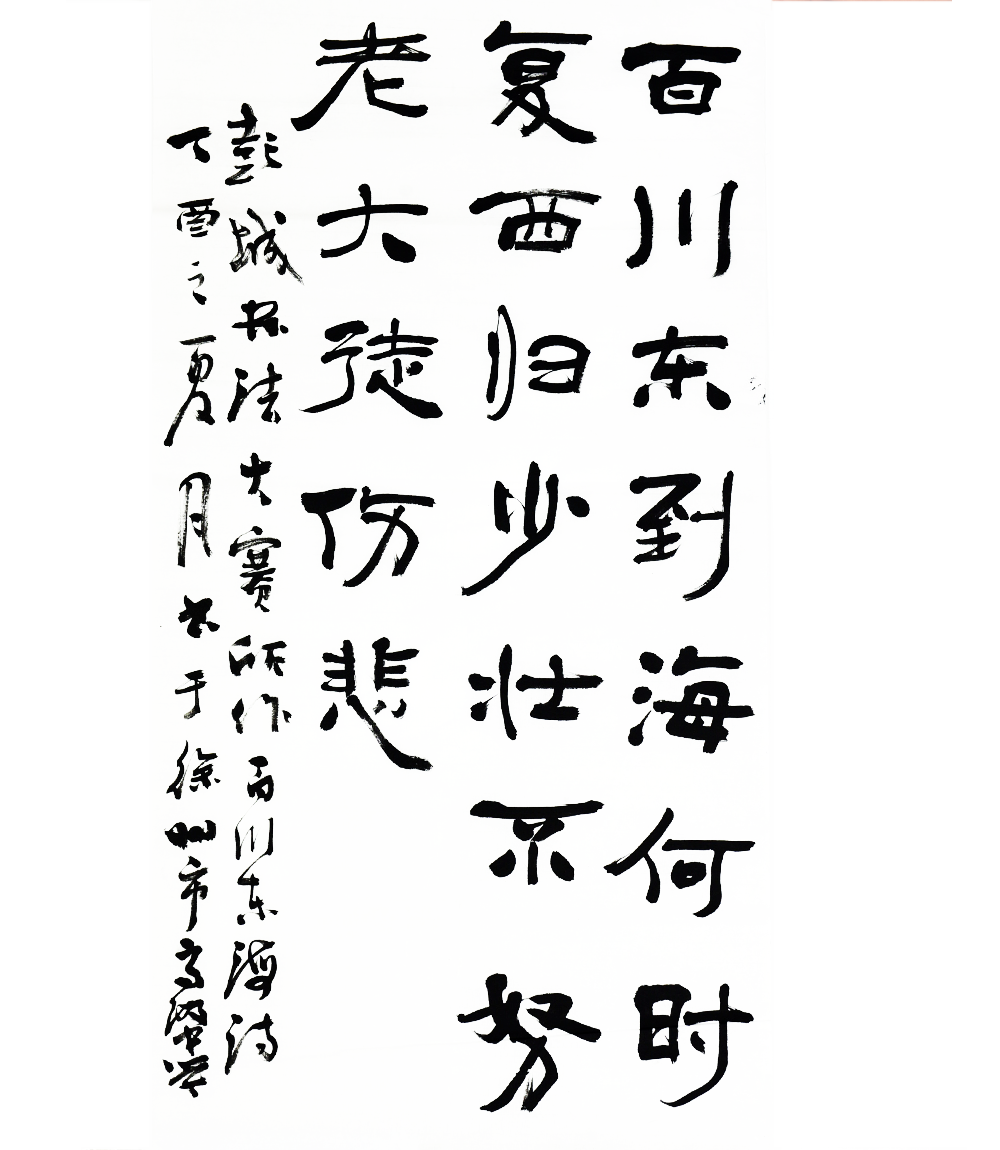 百川东到海何时
复西归少壮不努
老大徒伤悲
彭城书法大赛所作百川东海诗
丁酉之夏月书于徐州市高